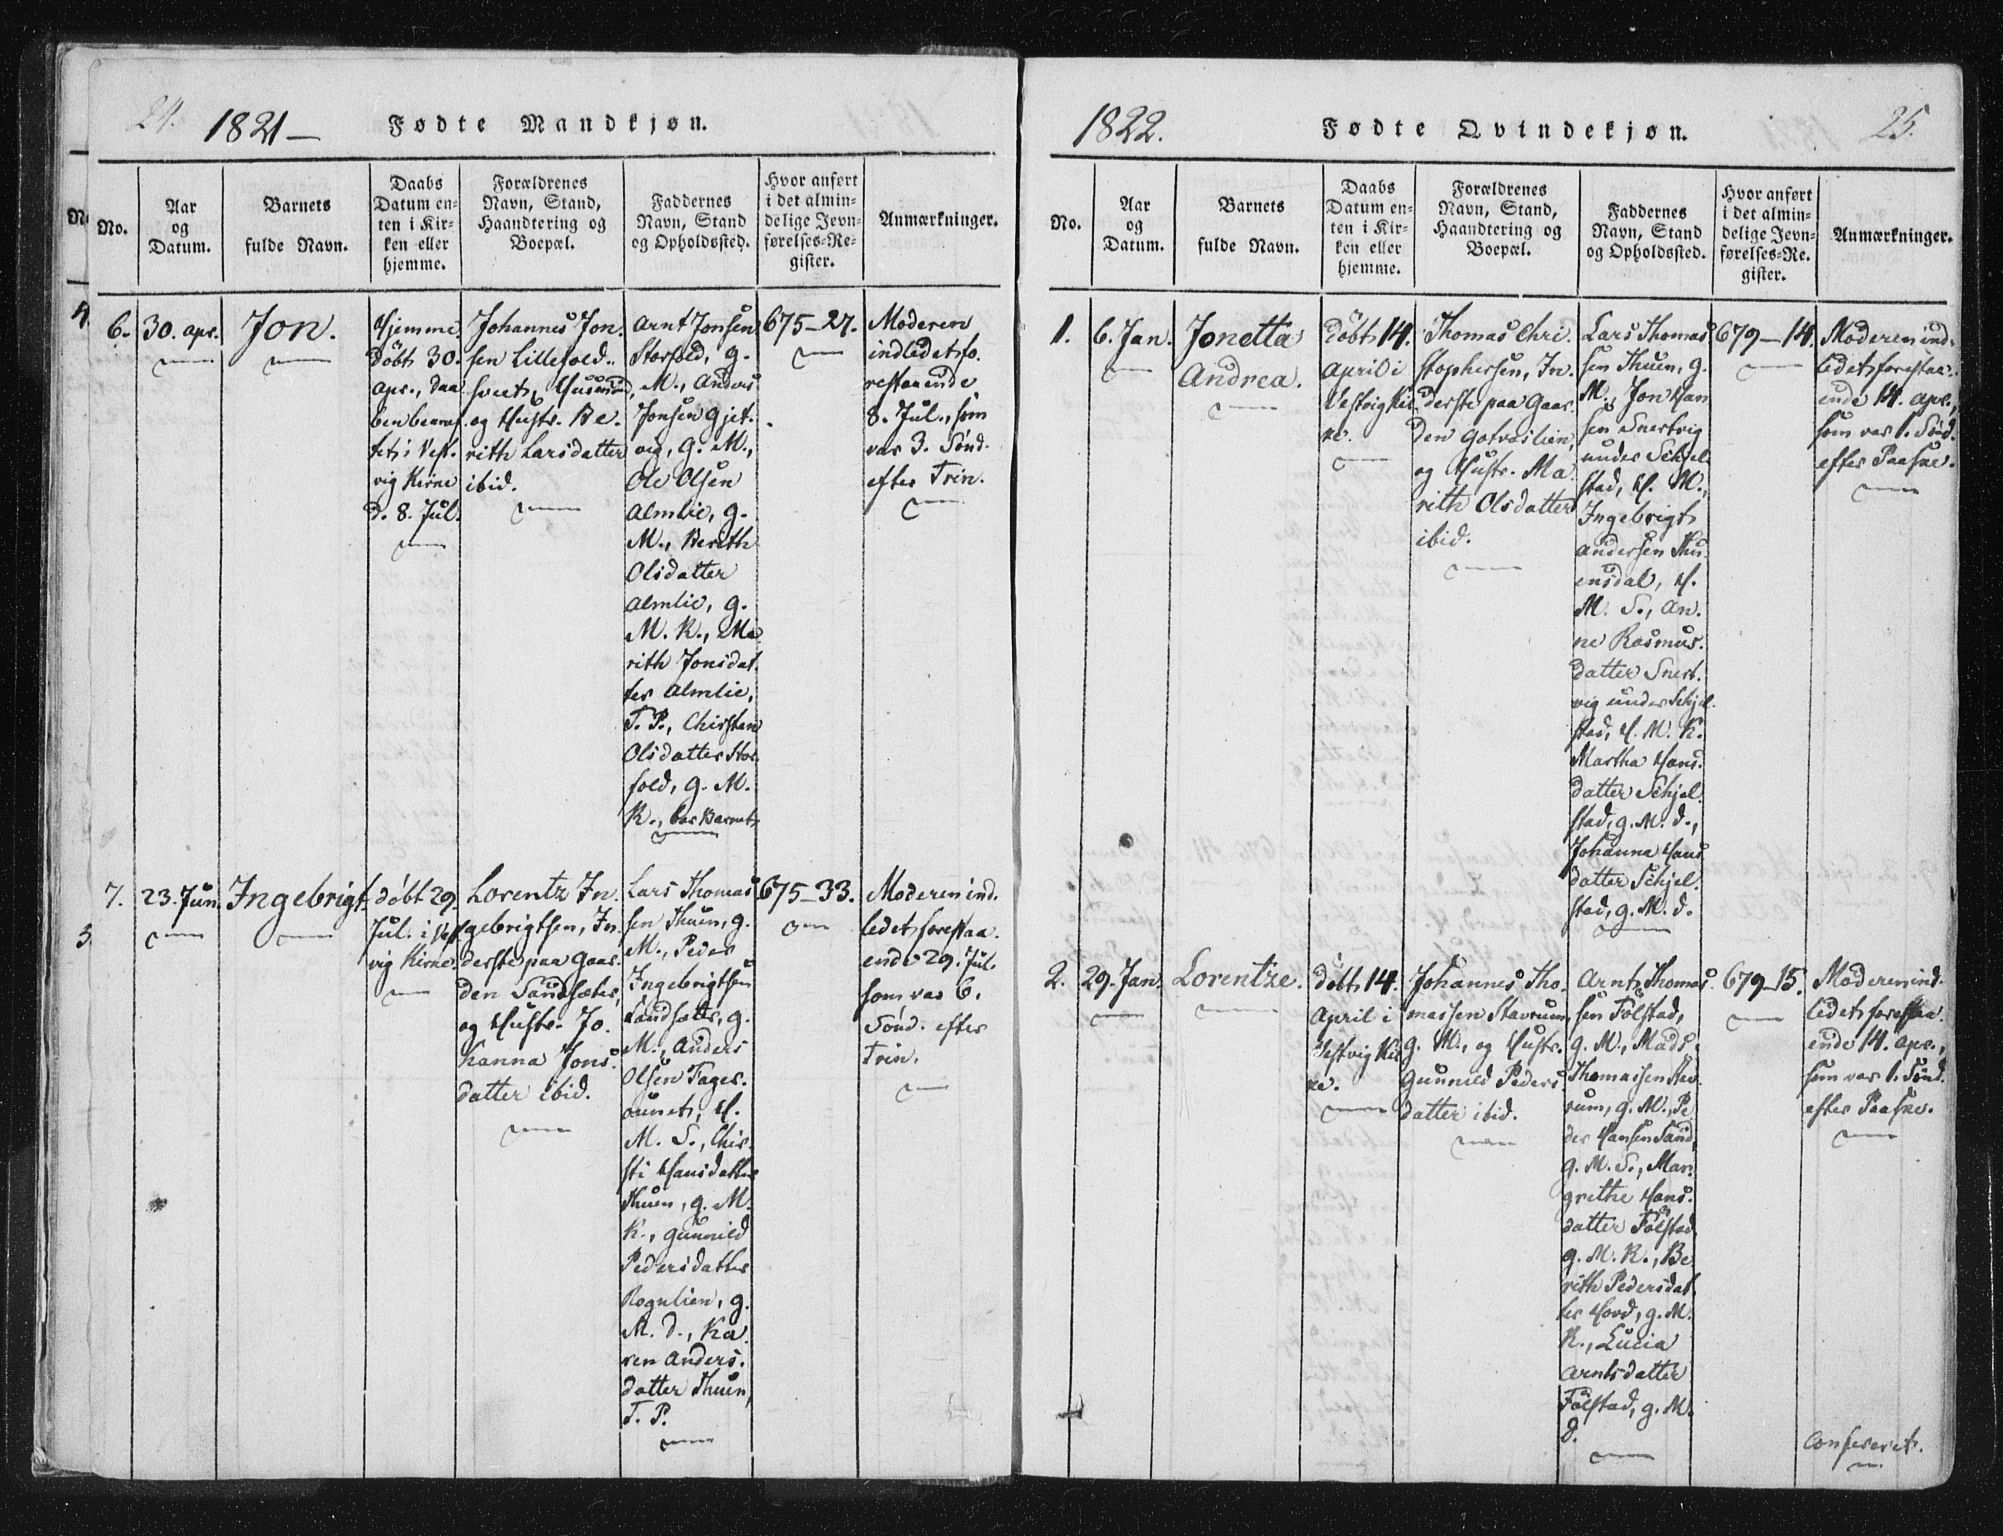 24.
1821 —
Fødte Mandkjøn.
No.
Aar
og
Datum.
Barnets
fulde Navn.
Daabs
Datum en-
ten i Kir-
ken eller
hjemme.
Forældrenes
Navn, Stand,
Haandtering og
Boepæl.
Faddernes
Navn, Stand
og Opholdssted.
Hvor anført
i det almin-
delige Jevn-
førelses-Re-
gister.
Anmærkninger.
6.
30. apr.
Jon.
Hjemme
døbt 30.
apr., Daa
ben bekræf
tet i Vest
vig Kirke
d. 8. Jul.
Johannes Jon
sen Lillefold..
hveet, Husmand,
og Hustr. Be.
rith Larsdatter
ibid.
Arnt Jonsen
Storfold, g.
M., Anders
Jonsen Gjet.
vig, G. M.,
Ole Olsen
Almlie, g.
M., Berith
Olsdatter
Almlie, g.
M. K., Ma
rith Jonsdat
ter Almlie,
T. P., Chirsten
Olsdatter Stor
fold, g. M.
K., bar Barnet.
675-27.
Moderen
indledet fo.
restaaende
8. Jul., som
var 3. Sönd.
efter Trin.
7.
23. Jun.
Ingebrigt.
döbt 29.
Jul. i Vest
vig Kirke.
Lorentz In
gebrigtsen, In
derste paa Gaar
den Sandsæter,
og Hustr. Jo.
hanna Jons.
datter ibid.
Lars Thomas
sen Thuen, g.
M., Peder
Ingebrigtsen
Sandsæter, g.
M., Anders
Olsen Fages.
ounet, H.
M. S., Chir
sti Hansdatter
Thuen, g. M.
K., Gunnild
Pedersdatter
Rognlien, g.
M. d., Ka
ren Anders.
datter Thuen,
T. P.
675-33.
Moderen ind.
ledet forestaa.
ende 29. Jul.
som var 6.
Sönd. efter
Trin.
1822.
Fødte Qvindekjøn.
25.
No.
Aar
og
Datum.
Barnets
fulde Navn.
Daabs
Datum en-
ten i Kir-
ken eller
hjemme.
Forældrenes
Navn, Stand,
Haandtering og
Boepæl.
Faddernes
Navn, Stand
og Opholdssted.
Hvor anført
i det almin-
delige Jevn-
førelses-Re-
gister.
Anmærkninger.
1.
6. Jan.
Jonetta
Andrea.
döbt 14.
April i
Vestvig Kir
ke.
Thomas Chri
stophersen, In.
derste paa Gaar
den Gotvaslien,
og Hustr. Ma
rith Olsdatter
ibid.
Lars Thomas
sen Thuen, g.
M., Jon Han
sen Snertvig
under Schjel
stad, H. M.,
Ingebrigt
Andersen Thu
ensdal, H.
M. S., An.
ne Rasmus.
datter Snert.
vig under Schjel
stad, H. M. K.
Martha Hans.
datter Schjel.
stad, g. M. d.,
Johanna Hans
datter Schjel.
stad, g. M. d.
679-14.
Moderen ind.
ledet forestaa.
ende 14. apr.,
som var 1. Sönd.
efter Paaske.
2.
29. Jan.
Lorentze.
döbt 14.
April i
Vestvig Kir
ke.
Johannes Tho.
massen Stavrum,
g. M., og Hustr.
Gunnild Peders
datter ibid.
Arnt Thomas
sen Fölstad,
g. M., Mads
Thomassen Stav
rum, g. M., Pe
der Hansen Sand,
g. M. S., Mar
grethe Hans.
datter Fölstad
g. M. K., Be
rith Pedersdat
ter Hovd, g. M.
K., Lucia
Arntsdatter
Fölstad, g. M.
d.
679-15.
Moderen ind.
ledet forestaa.
ende 14. apr.,
som var 1. Sönd.
efter Paaske.
Confereret.